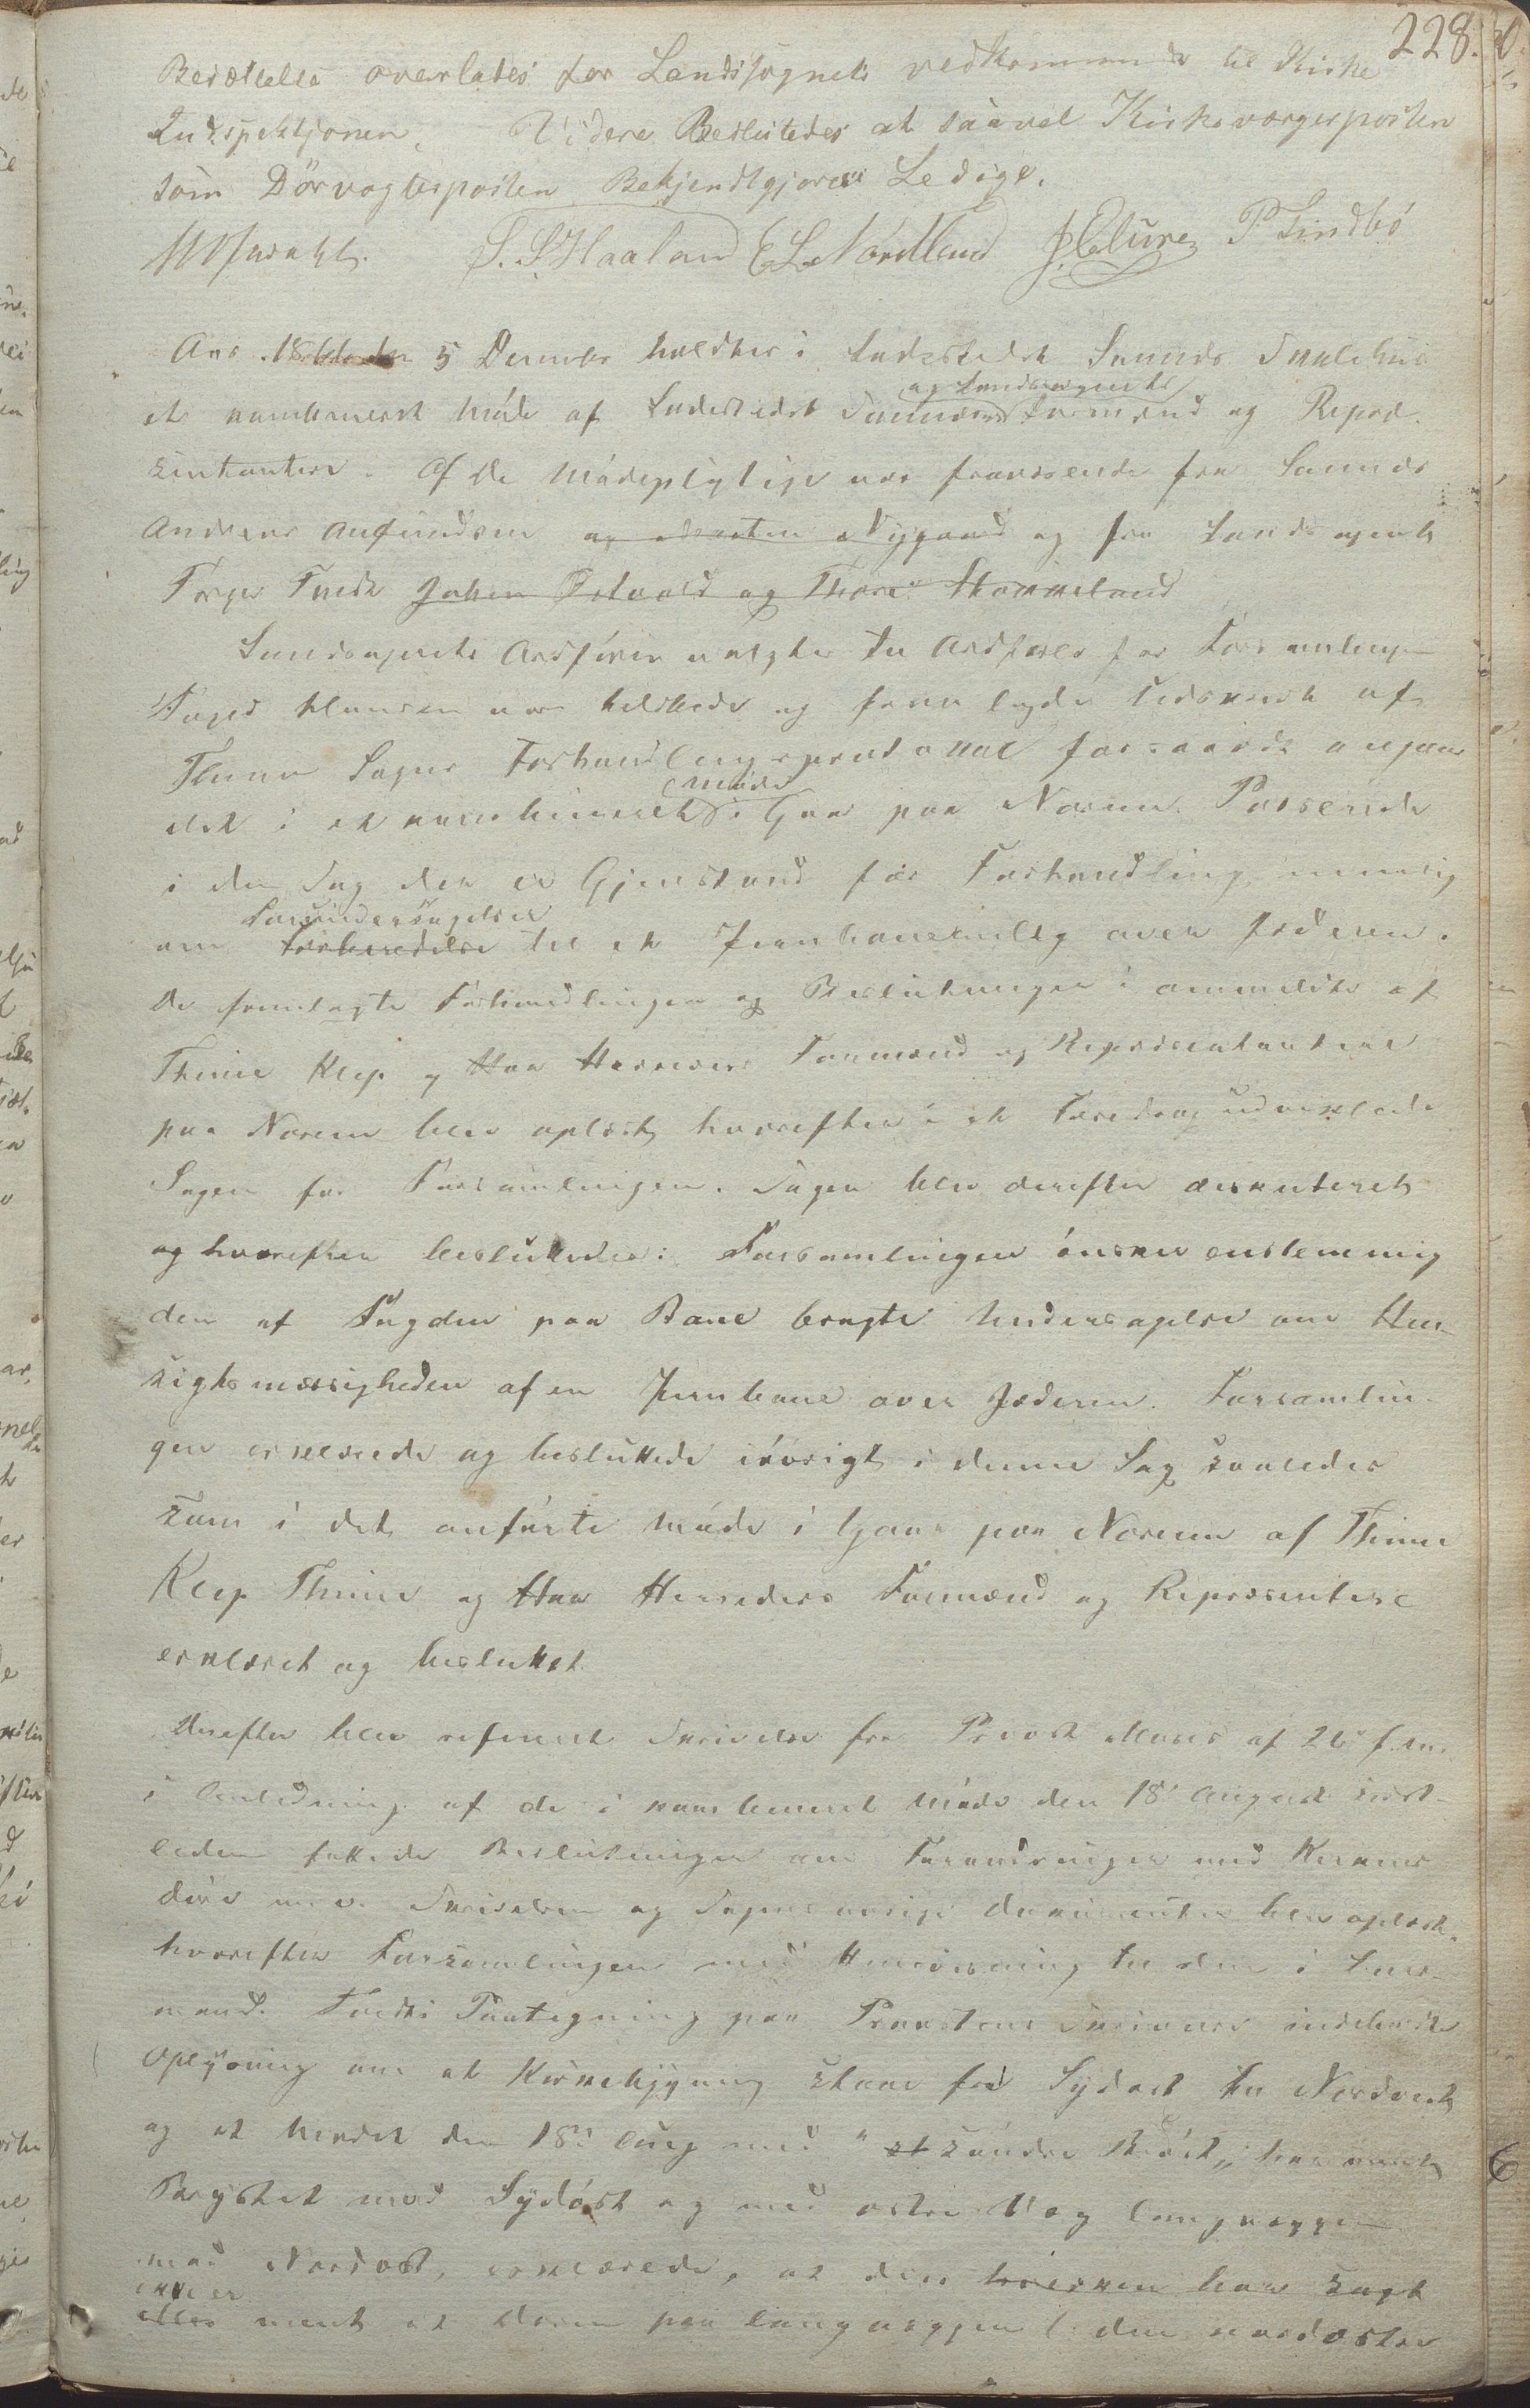 228.
Besættelse overlades for Landsognets vedkommende til Kirke
Indspektjonen. Videre Besluttedes at saavel Kirkeværgerposten
som Dörvogterposten Bekjendtgjøres Ledige.
S. S. Haaland E L Nordlund P Lindbö
Aar 5 December holdtes i Ladestedet Sannds Skolehus
og Landsognets
et kombineret Möde af Ladestedet Formænd og Repræ-
sentantere. Af de Mödepligtige var fraværende fra Sannds
Andreas Anfundsen og Nygaard og fra Landsognets
Torger Tvedt Johan Østvold og Thore
Landsognets Ordförer valgtes til Ordförer for Forsamlingen
Foged Clausen var tilstede og fremlagde Udskrift af
Thime Sogns Forhandlingsprotokol forsaavidt angaar
möde
det i et kombineret i Gaar paa Nærem Passerede
i den Sag der er Gjenstand for Forhandling nemlig
Forundersögelser
om Forberedelse til et Jernbaneanlæg over Jæderen.
De fremlagte Forhandlinger og Beslutninger i anmeldte af
Thime Klep og Haa Herreders Formænd og Repræsentantere
paa Nærem blev oplæst, hvorefter i et Foredrag udviklede
Sagen for Forsamlingen. Sagen blev derefter diskuteret
og hvorefter besluttedes: Forsamlingen önsker enstemmig
den af Fogden paa Bane bragte Undersögelse om Hen-
sigtsmæssigheden af en Jernbane over Jæderen. Forsamlin-
gen erklærede og besluttede iövrigt i denne Sag saaledes
som i det anförte Möde i Gaar paa Nærem af Thime
Klep Thime og Haa Herreders Formænd og Repræsentere
erklæret og besluttet.
Derefter blev refereret Skrivelse fra Provst af 26 f. m.
i Anledning af de i kombineret Möde den 18 August sidst-
leden fattede Beslutninger om Forandringer med Kirkens
döre m. v. Skrivelsen og Sagens övrige Dokumenter blev oplæst,
hvorefter Forsamlingen med Henvisning til den i For-
mand Tvedts Paategning paa Provstens Skrivelse indeholdte
Oplysning om at Kirkebygning staar fra Sydost til Nordvest
og at Mödet den 18de Aug med " söndre Bröst" har ment
Brystet mod Sydöst og med östre Væg langvæggen
mod Nordost, erklærede, at den har sagt
ikke er
eller ment at Dören paa langvæggen (: den nordöstre